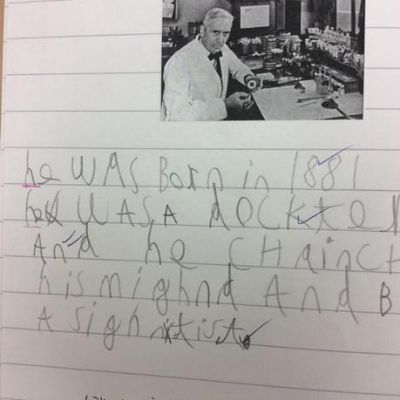 he WAS Born in 1881
he WAS A dOCKTOR
And he CHAinCH
his mighnd And B
A sighntist